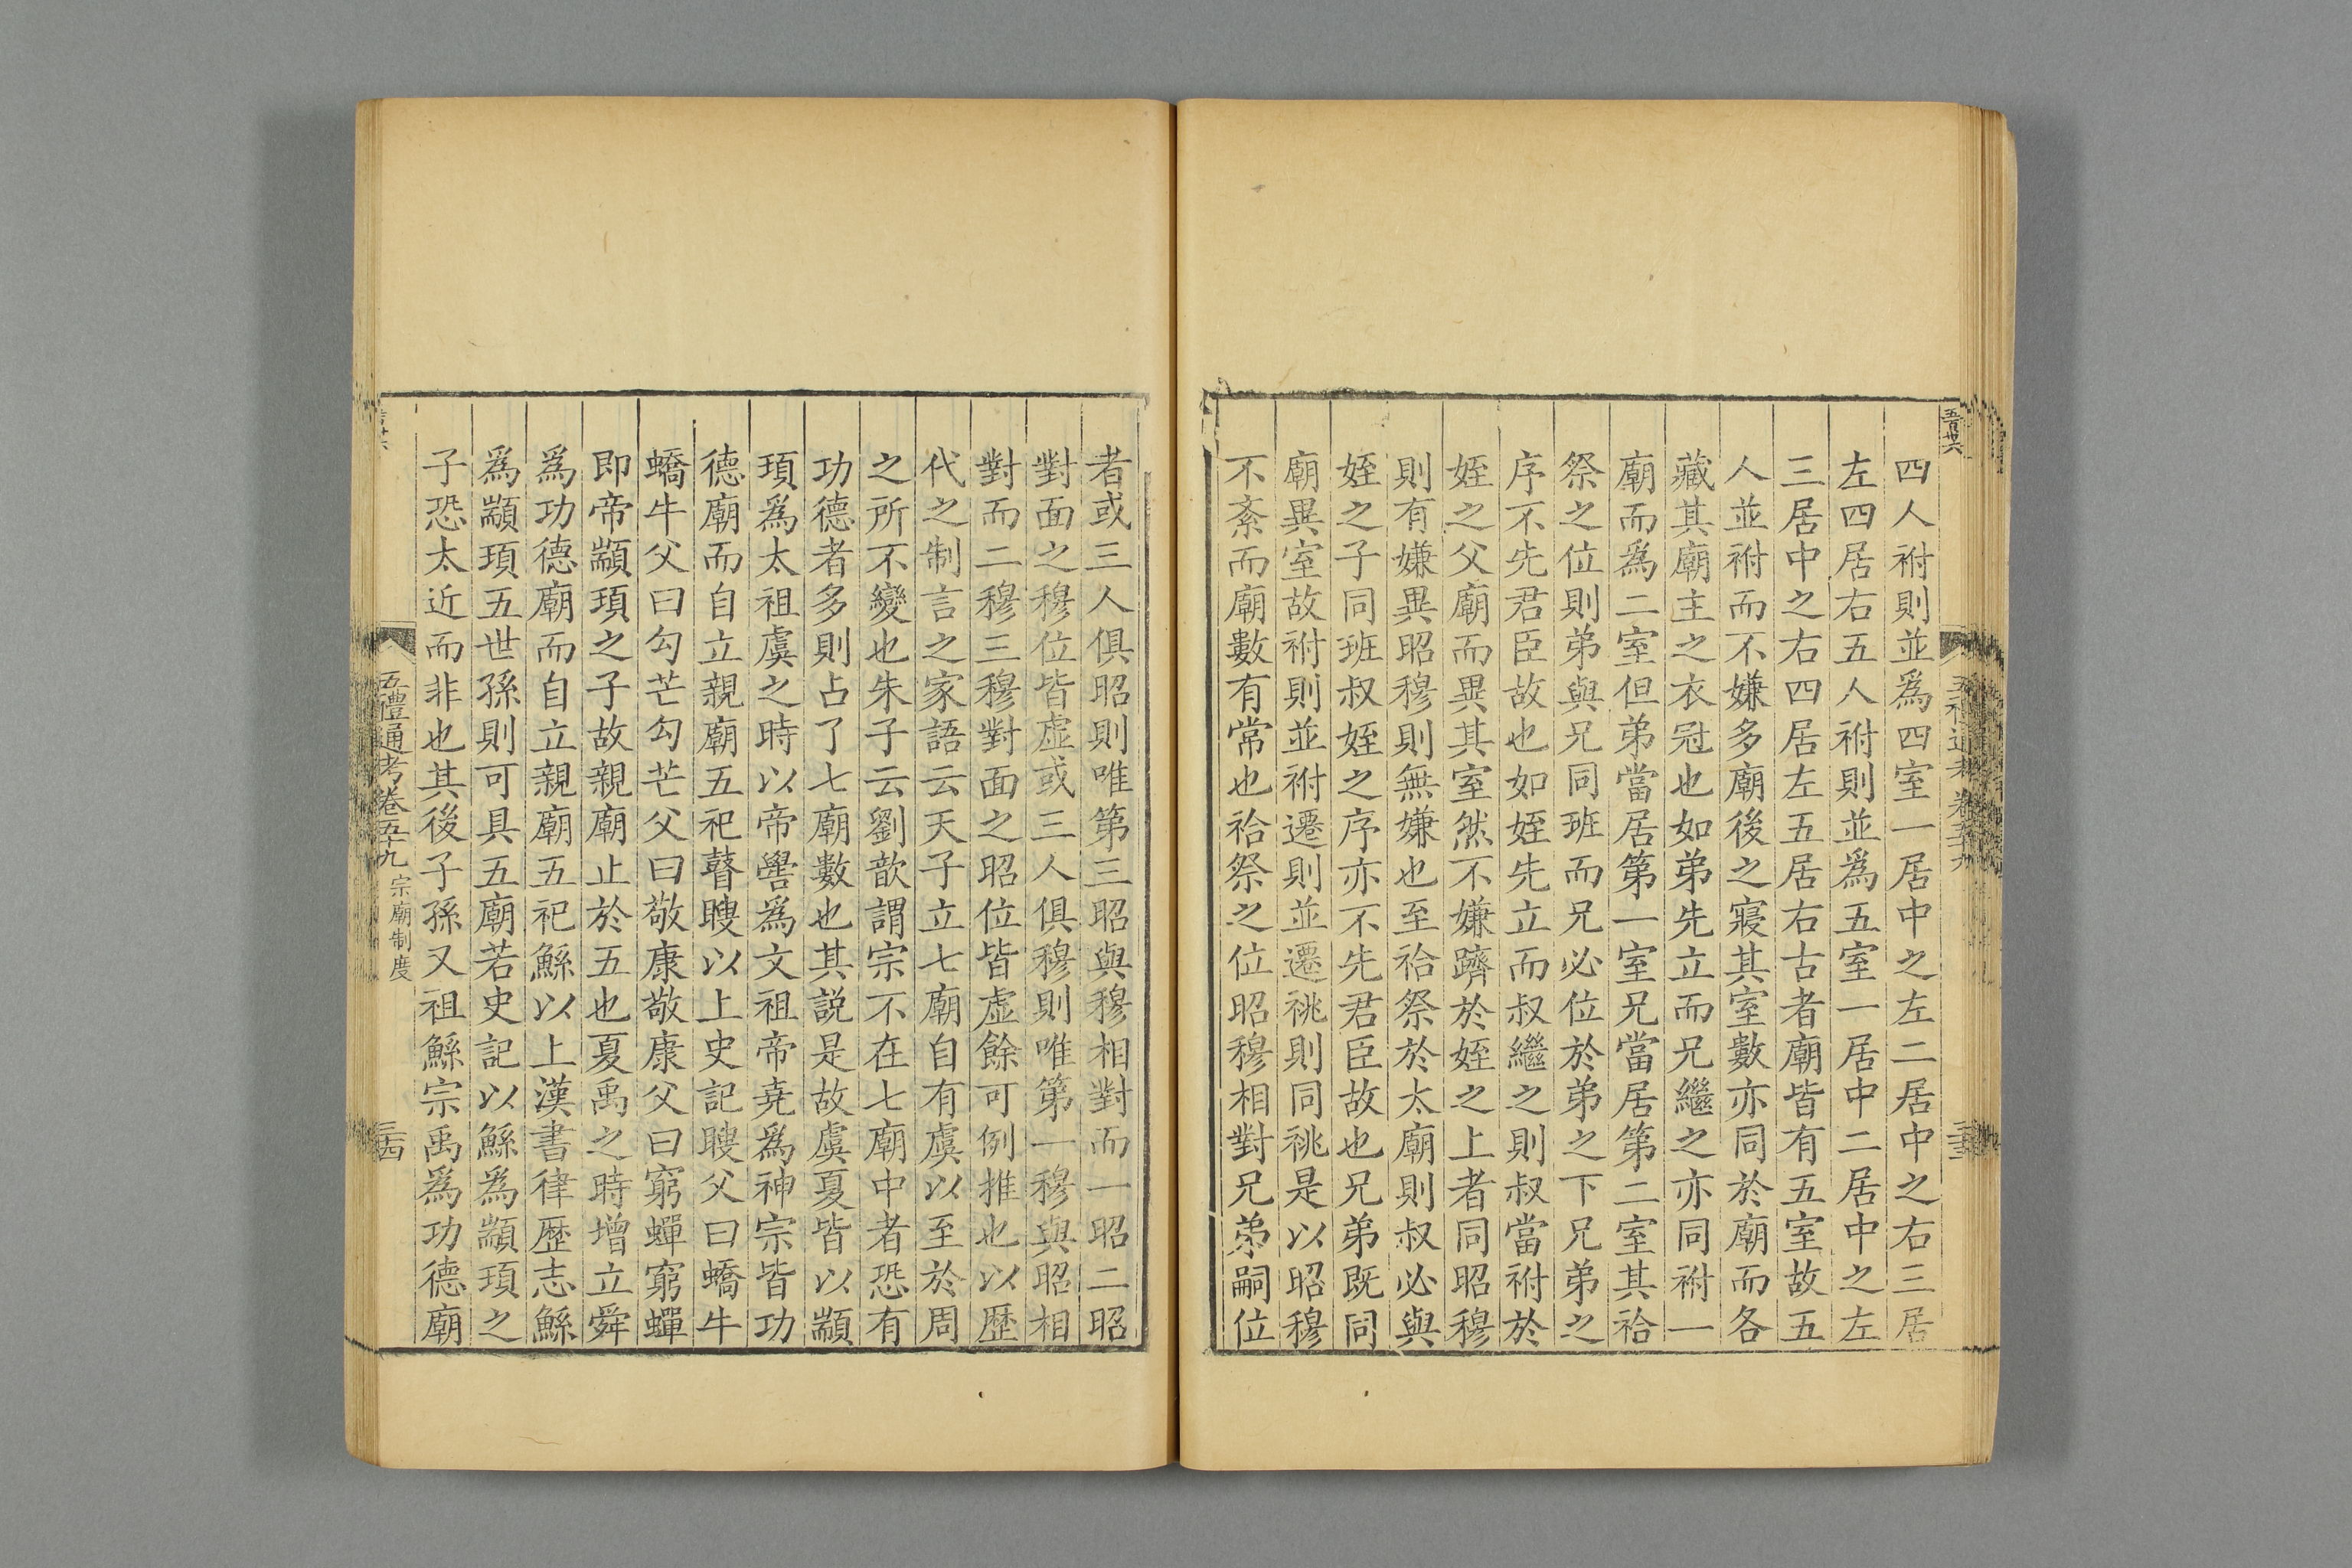 四人祔則並爲四室一居中之左二居中之右三居
左四居右五人祔則並爲五室一居中二居中之左
三居中之右四居左五居右古者廟皆有五室故五
人並祔而不嫌多廟後之寢其室數亦同於廟而各
藏其廟主之衣冠也如弟先立而兄繼之亦同祔一
廟而爲二室但弟當居第一室兄當居第二室其祫
祭之位則弟與兄同班而兄必位於弟之下兄弟之
序不先君臣故也如姪先立而叔繼之則叔當祔於
姪之父廟而異其室然不嫌躋於姪之上者同昭穆
則有嫌異昭穆則無嫌也至祫祭於太廟則叔必與
姪之子同班叔姪之序亦不先君臣故也兄弟既同
廟異室故祔則並祔遷則並遷祧則同祧是以昭穆
不紊而廟數有常也祫祭之位昭穆相對兄弟嗣位
者或三人俱昭則唯第三昭與穆相對而一昭二昭
對面之穆位皆虛或三人俱穆則唯第一穆與昭相
對而二穆三穆對面之昭位皆虛餘可例推也以歷
代之制言之家語云天子立七廟自有虞以至於周
之所不變也朱子云劉歆謂宗不在七廟中者恐有
功德者多則占了七廟數也其說是故虞夏皆以顓
頊爲太祖虞之時以帝嚳爲文祖帝堯爲神宗皆功
德廟而自立親廟五祀瞽瞍以上史記瞍父曰蟜牛
蟜牛父曰勾芒勾芒父曰敬康敬康父曰窮蟬窮蟬
即帝顓頊之子故親廟止於五也夏禹之時增立舜
爲功德廟而自立親廟五祀鯀以上漢書律歷志鯀
爲顓頊五世孫則可具五廟若史記以鯀爲顓頊之
子恐太近而非也其後子孫又祖鯀宗禹爲功德廟
五禮通考卷五十九 宗廟制度 三十四